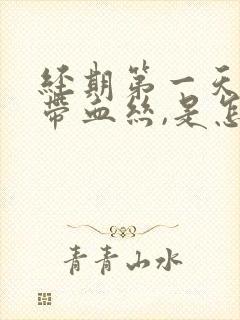 经期第一天
带血丝,是怎
青青山水